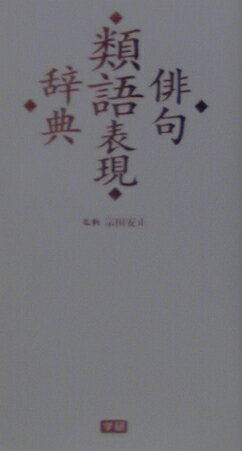 俳句
類語表現
辞典
監修 宗田安正
学研